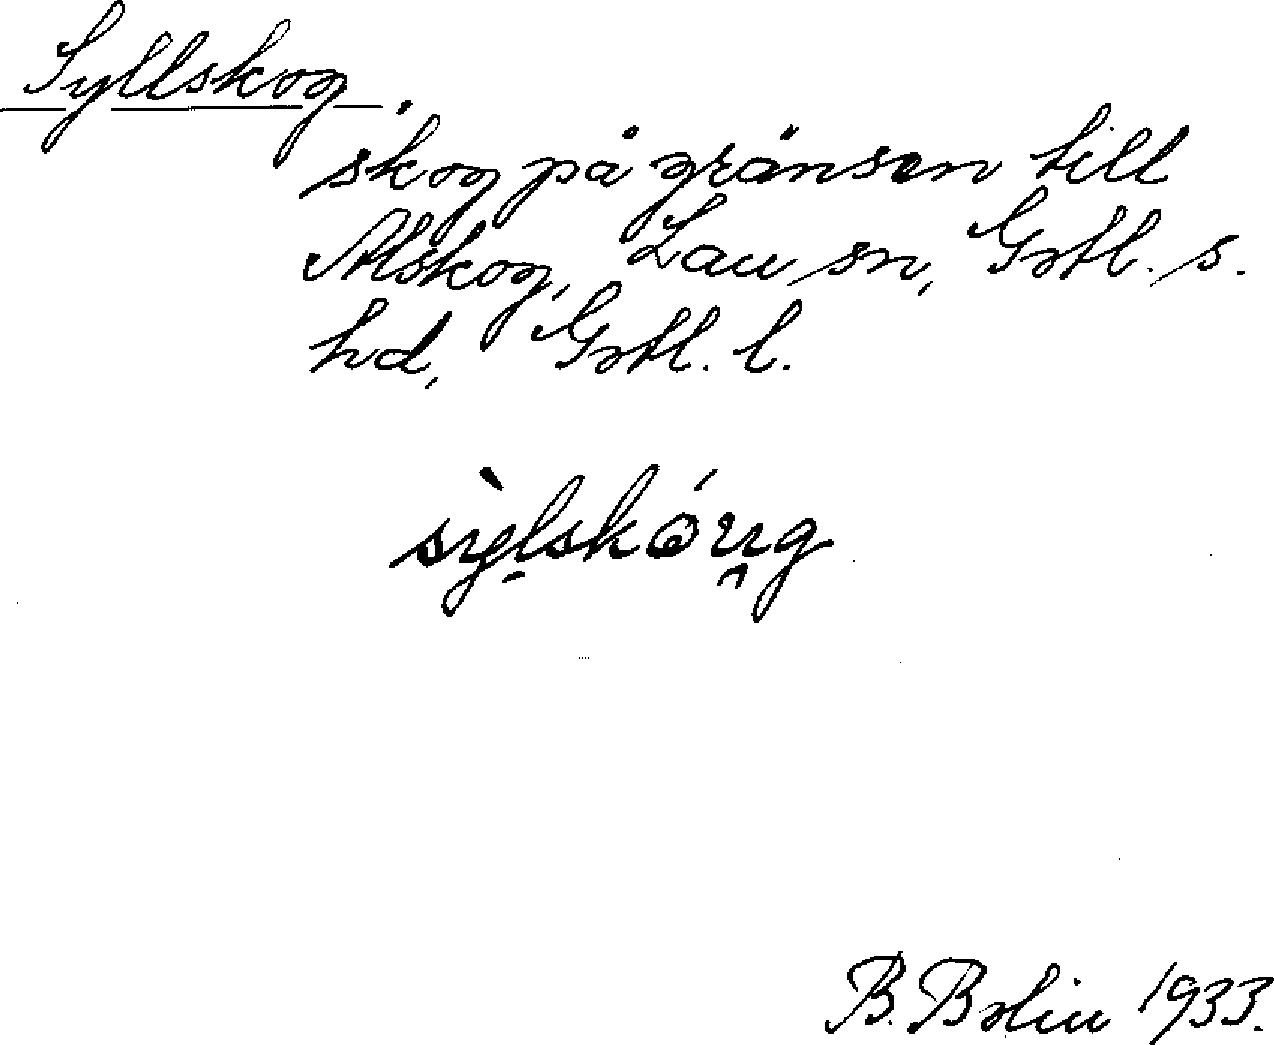 Syllskog.
skog på gränsen till
Alskog, Lau sn, Gotl. s.
hd, Gotl. l.
B. Bolin 1933.